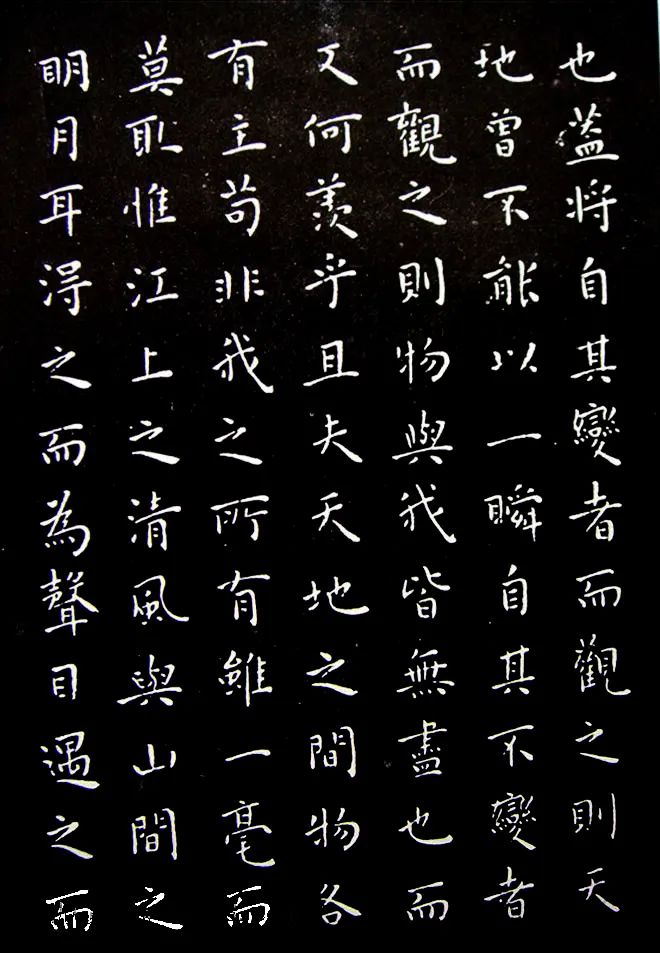 也蓋將自其變者而觀之則天
地曾不能以一瞬自其不變者
而觀之則物與我皆無盡也而
又何羨乎且夫天地之間物各
有主苟非我之所有雖一毫而
莫取惟江上之清風與山間之
明月耳得之而為聲目遇之而